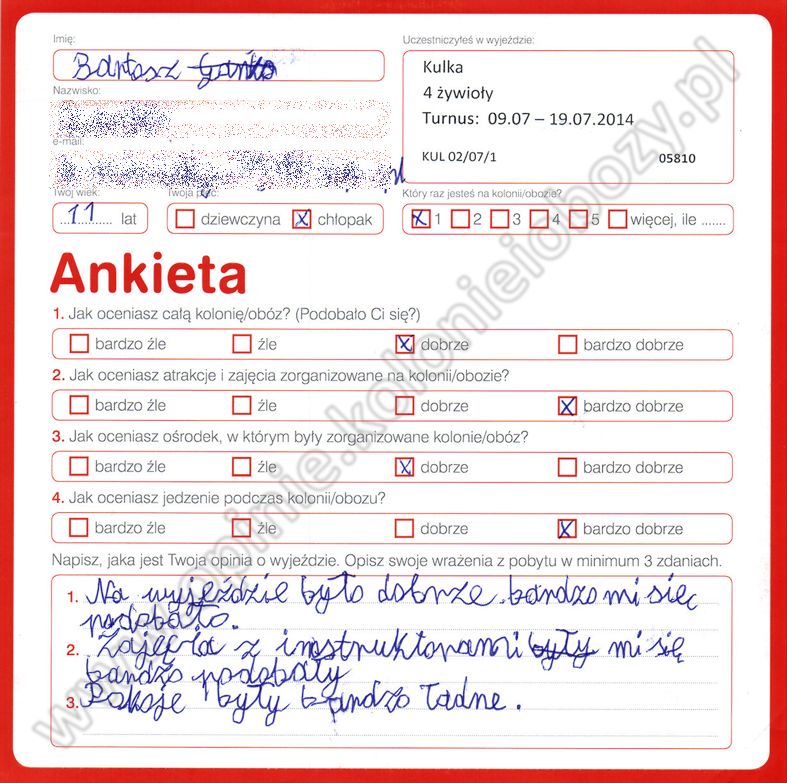 Imię:
Bartosz
Uczestniczyłeś w wyjeździe:
Kulka
4 żywioły
Turnus: 09.07 – 19.07.2014
KUL 02/07/1 05810
Nazwisko:
e-mail:
Twój wiek: Twoja płeć: Który raz jesteś na kolonii/obozie?
11 lat dziewczyna x chłopak x 1 2 3 4 5 więcej, ile .......
Ankieta
1. Jak oceniasz całą kolonię/obóz? (Podobało Ci się?)
bardzo źle źle x dobrze bardzo dobrze
2. Jak oceniasz atrakcje i zajęcia zorganizowane na kolonii/obozie?
bardzo źle źle dobrze x bardzo dobrze
3. Jak oceniasz ośrodek, w którym były zorganizowane kolonie/obóz?
bardzo źle źle x dobrze bardzo dobrze
4. Jak oceniasz jedzenie podczas kolonii/obozu?
bardzo źle źle dobrze x bardzo dobrze
Napisz, jaka jest Twoja opinia o wyjeździe. Opisz swoje wrażenia z pobytu w minimum 3 zdaniach.
1. Na wyjeździe było dobrze. bardzo mi sięc
podobało.
2. Zajęcia z instruktorami były mi się
bardzo podobały
3. Pokoje były bardzo ładne.
www.opinie.kolonieiobozy.pl